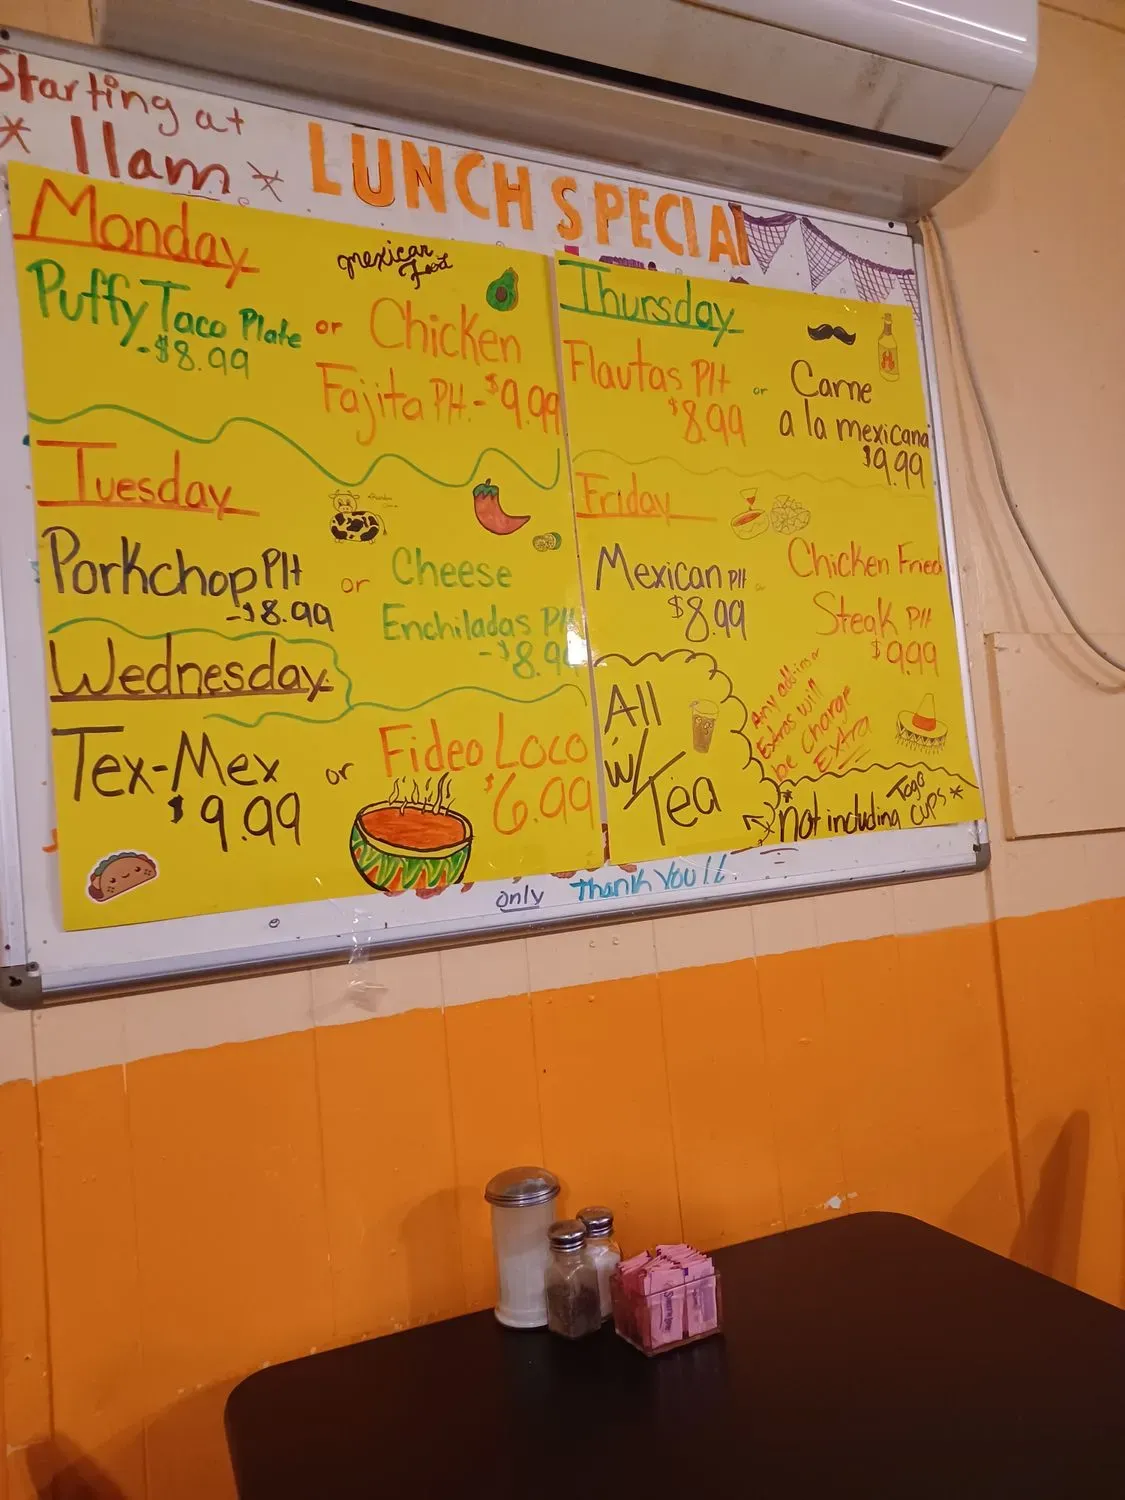 Starting at
* 11am *
LUNCH SPECIAL
Monday
mexican
food
Puffy Taco Plate
-$8.99
or
Chicken
Fajita Plt. - $9.99
Tuesday
Porkchop Plt
-$8.99
or
Cheese
Enchiladas Plt
-$8.99
Wednesday
Tex-Mex
$9.99
or
Fideo Loco
$6.99
Thursday
Flautas Plt
$8.99
or
Carne
a la mexicana
$9.99
Friday
Mexican Plt
$8.99
Chicken Fried
Steak Plt
$9.99
All
w/
Tea
Any add-ins or
Extras will
be charge
EXTRA
*not including Togo cups*
only
Thank You!!